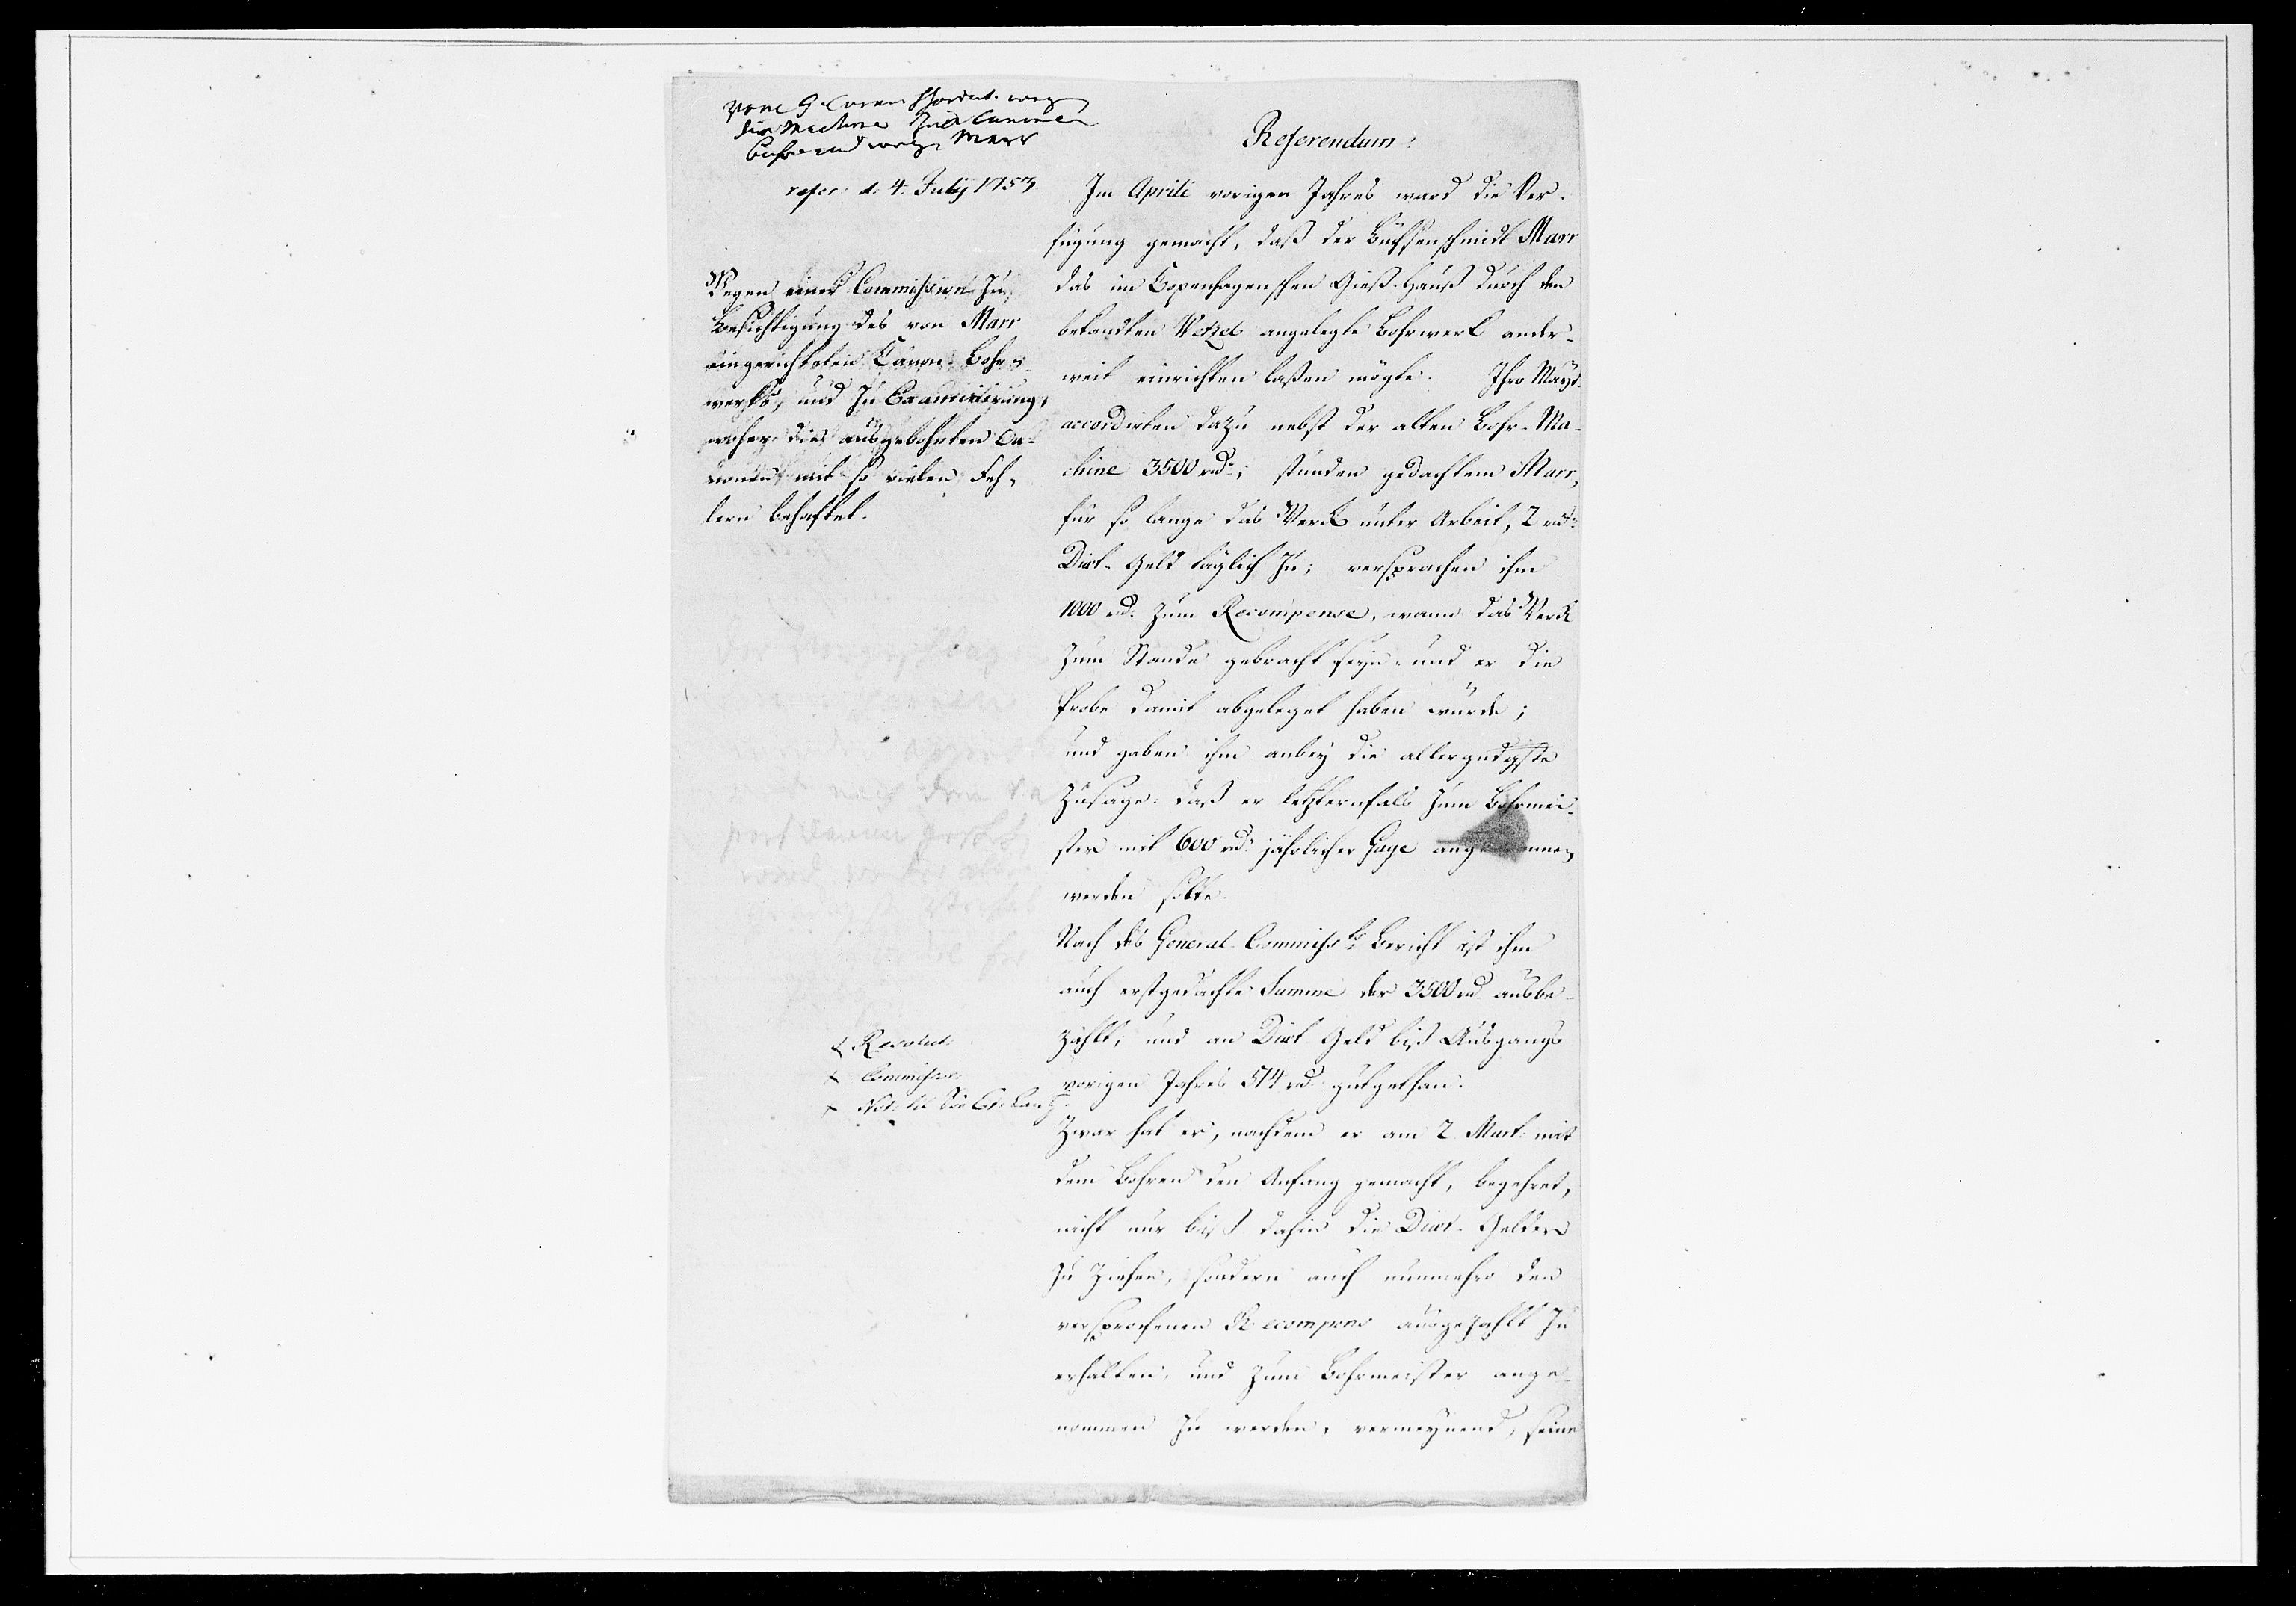 die Machine zur Canone
refer: d. 4. July 1753
Wegen einer Commission zu
Besichtigung des von Marr
eingerichteten Canon-Bohr-
werks, und zu Examinirung,
woher die ausgebohrten Ca-
nonen mit so vielen Feh-
lern behaftet.
Resolut:
Commission
Referendum:
Im Aprili vorigen Jahres ward die Ver-
fügung gemacht, daß der Büchsenschmidt Marr
das im Copenhagenschen Gieß-Hauß durch den
bekandten Wetzel angelegte Bohrwerk ander-
weit einrichten laßen mögte. Ihro Mayt.
accordirten dazu nebst der alten Bohr-Ma-
chine 3500 rd:; stunden gedachtem Marr,
für so lange das Werk unter Arbeit, 2 rd:
Diæt-Geld täglich zu; versprachen ihm
1000 rd: zum Recompense, wann das Werk
zum Stande gebracht seyn und er die
Probe damit abgeleget haben würde;
und gaben ihm anbey die allergndgste
Zusage: daß er letzternfalls zum Bohrmei-
ster mit 600 rd: jährlicher Gage angenommen
werden solte.
Nach des General-Commiss: Bericht ist ihm
auch erstgedachte Summe der 3500 rd ausbe-
zahlt; und an Diæt Geld biß Ausgangs
vorigen Jahres 514 rd: gutgethan.
Zwar hat er, nachdem er am 2 Mart: mit
dem Bohren den Anfang gemacht, begehret,
nicht nur biß dahin die Diæt-Gelder
zu ziehen, sondern auch nunmehro den
versprochenen Recompens ausgezahlt zu
erhalten, und zum Bohrmeister ange-
nommen zu werden, vermeynend, seine